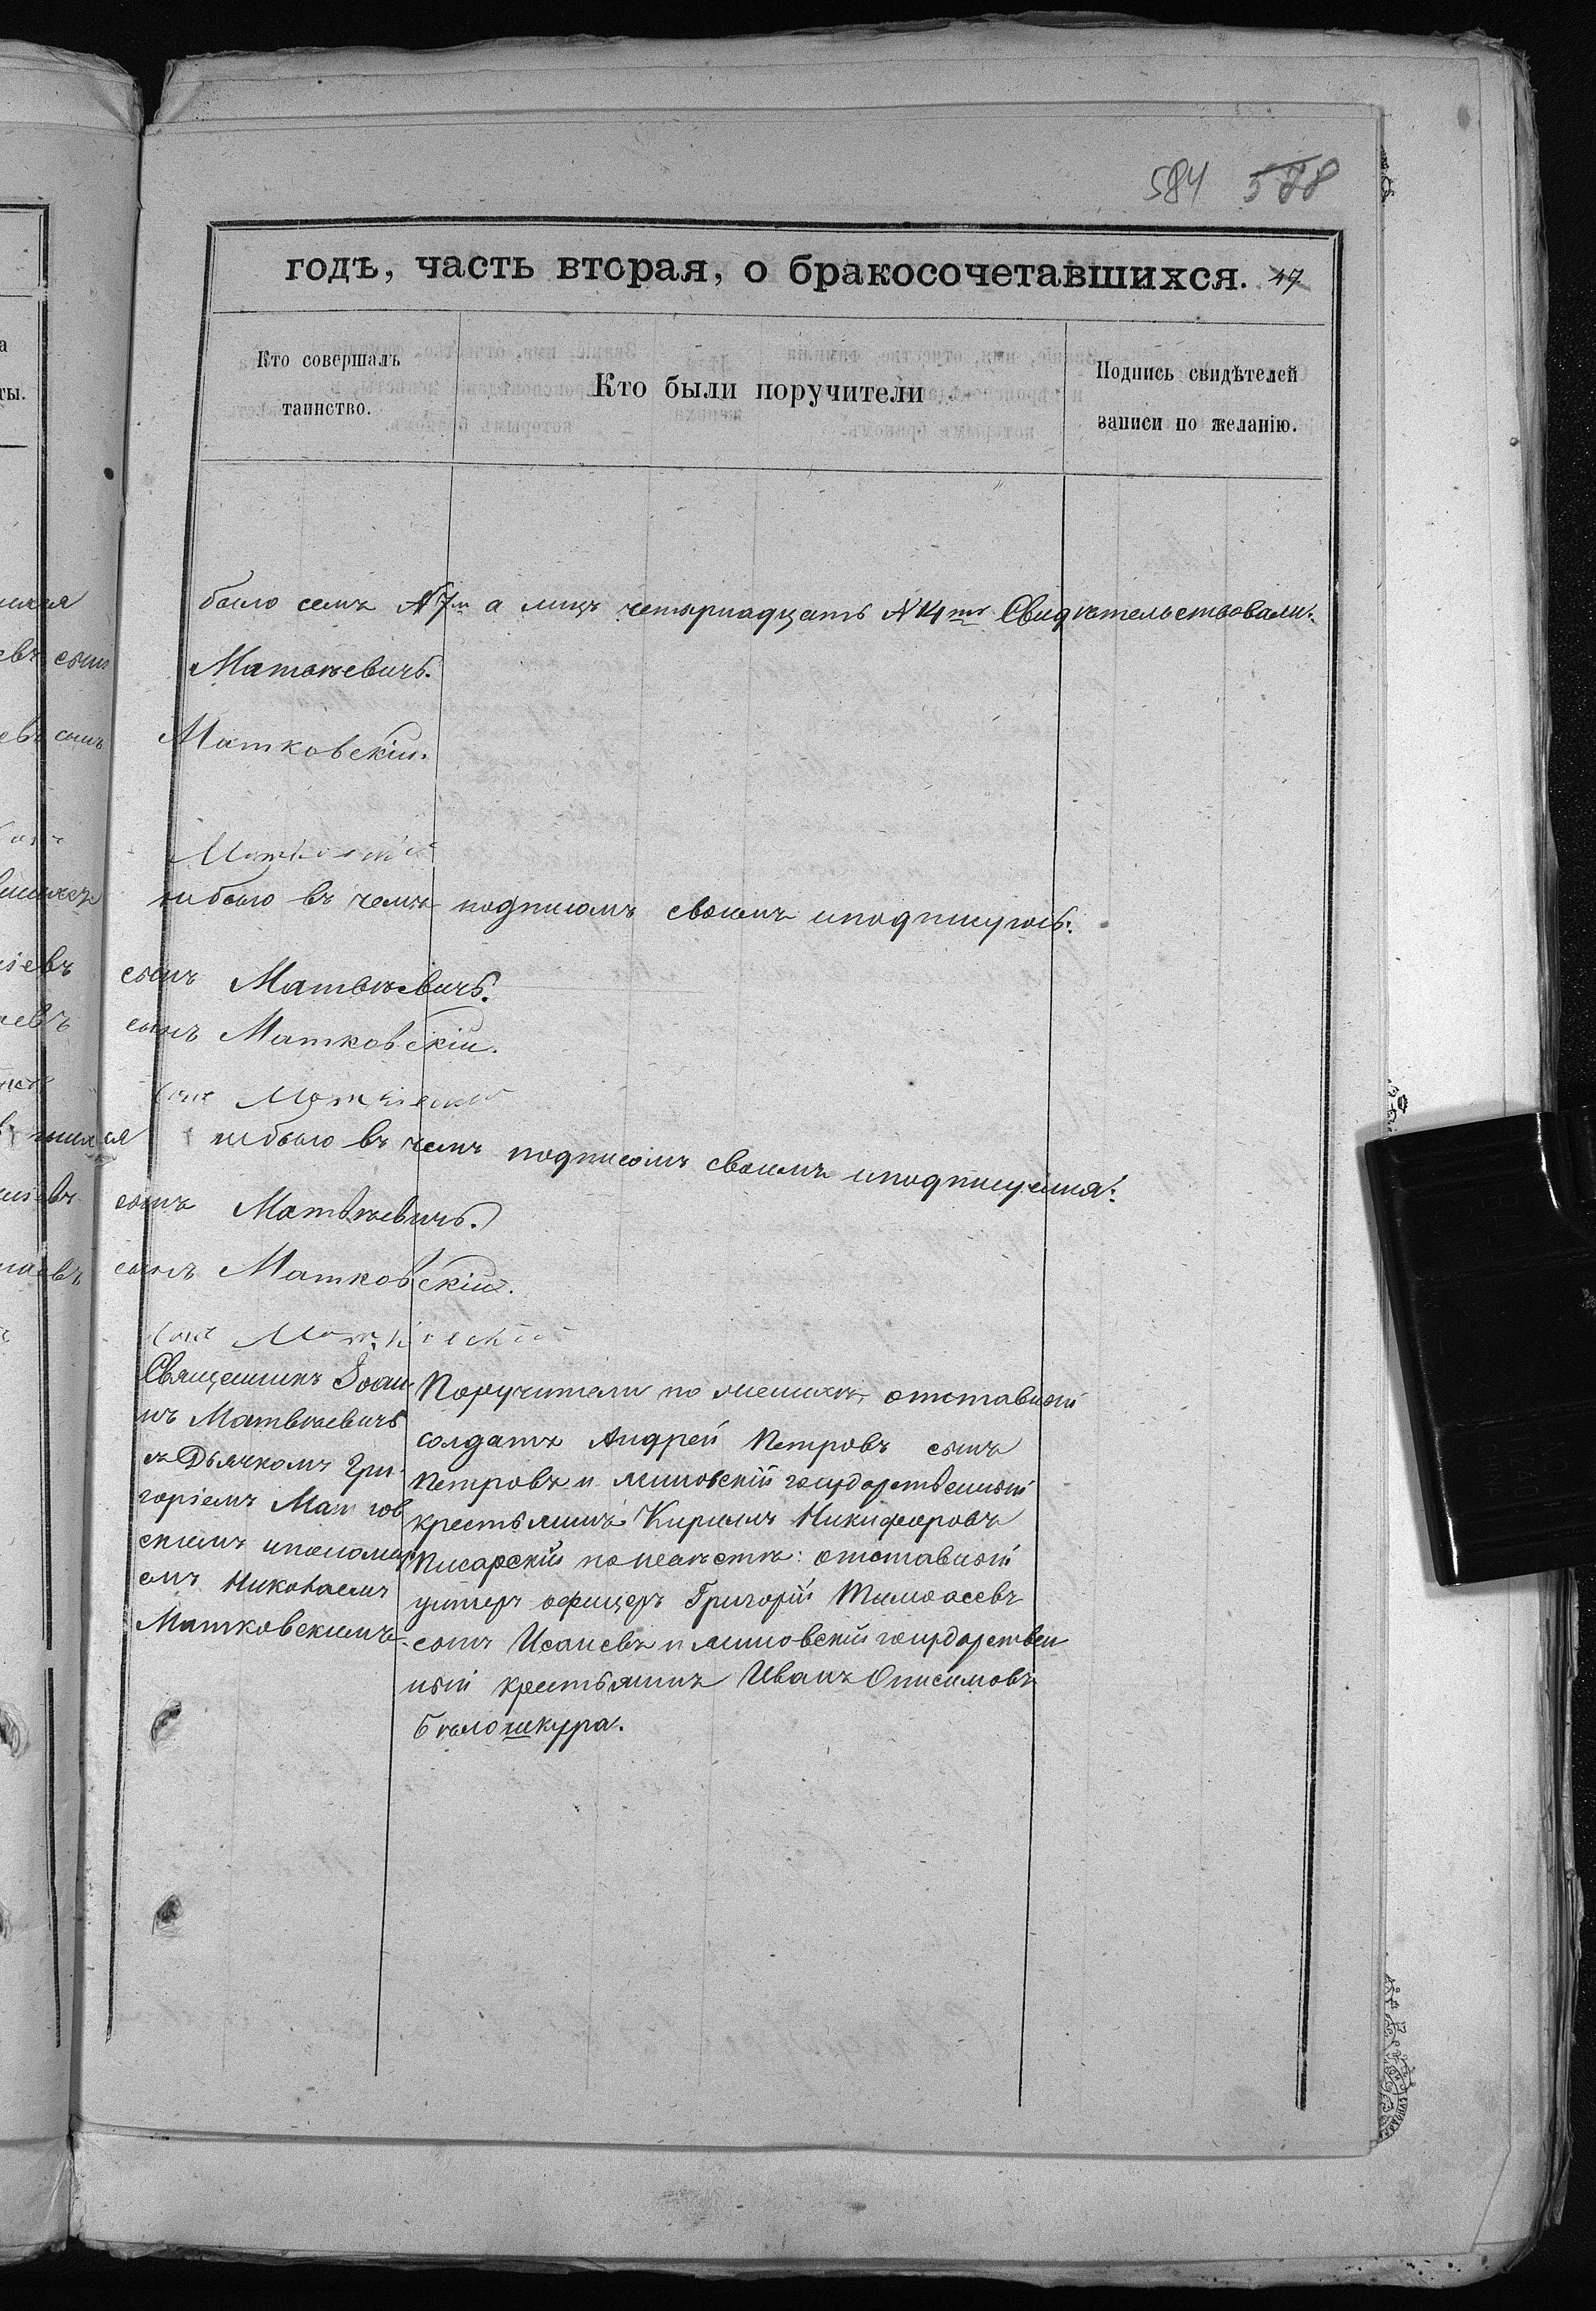 584 578
годѣ, часть вторая, о бракосочетавшихся. 47
Кто совершалъ
таинство.
Кто были поручители
Подпись свидѣтелей
записи по желанію.
было семь №7 а лицъ четырнадцать №14 Свидѣтельствовали:
Матвѣевичъ.
Матковскій.
небыло въ чемъ подписомъ своимъ иподпишусь:
сынъ Матвѣевичъ.
сынъ Матковскій.
небыло въ чемъ подписомъ своимъ иподпишемся:
сынъ Матвѣевичъ.
сынъ Матковскій.
Священникъ Іоан-
нъ Матвѣевичъ
съ Дьячкомъ Гри-
горіемъ Матков
скимъ ипономар
емъ Николаемъ
Матковскимъ.
Поручители по женихѣ, отставный
солдатъ Андрей Петровъ сынъ
Петровъ и государственный
крестьянинъ Кириллъ Никифоровъ
Писарскій поневѣстѣ: отставный
унтеръ офицеръ Григорій Тимоѳеевъ
сынъ Исаевъ и государствен
ный крестьянинъ Иванъ Онисимовъ
Бѣлошкура.